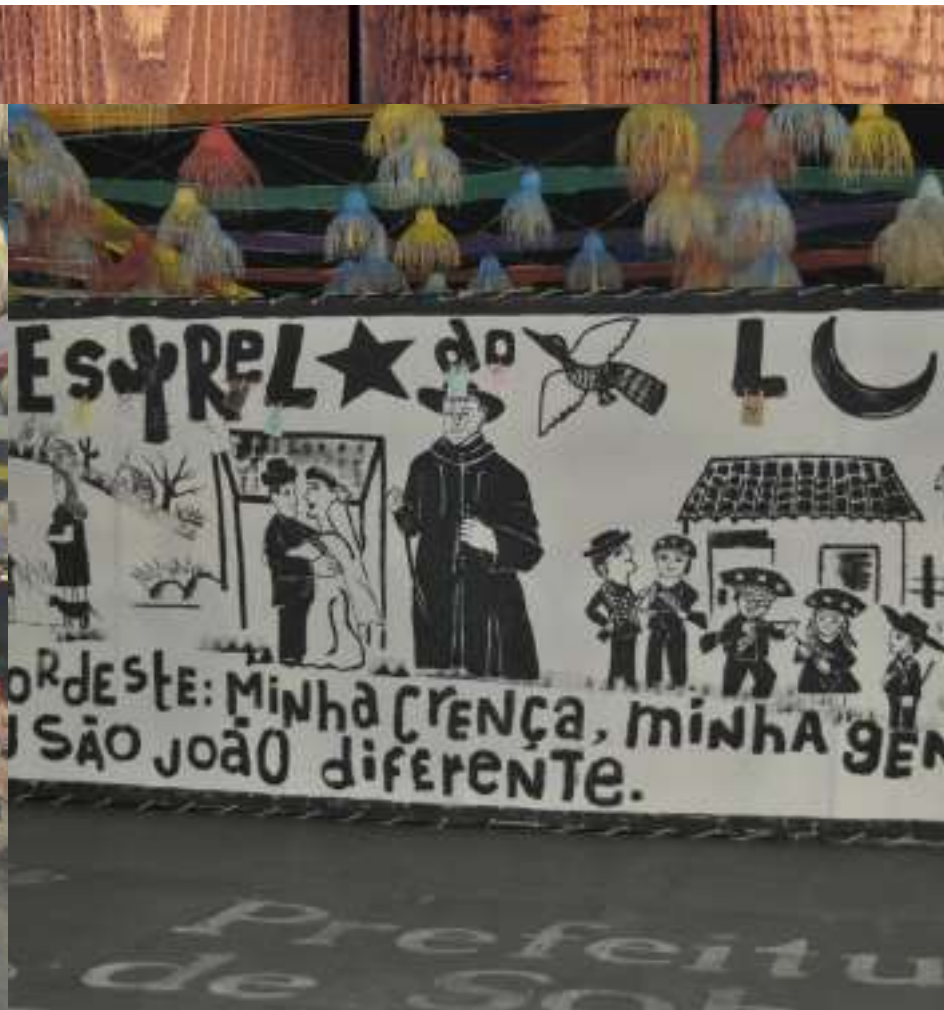 EsTReL★ do L☾
ORdEStE: MiNha CrENÇa, miNhA gEN
SÃO JOÃO difErENTe.
Prefeitu
de Sob